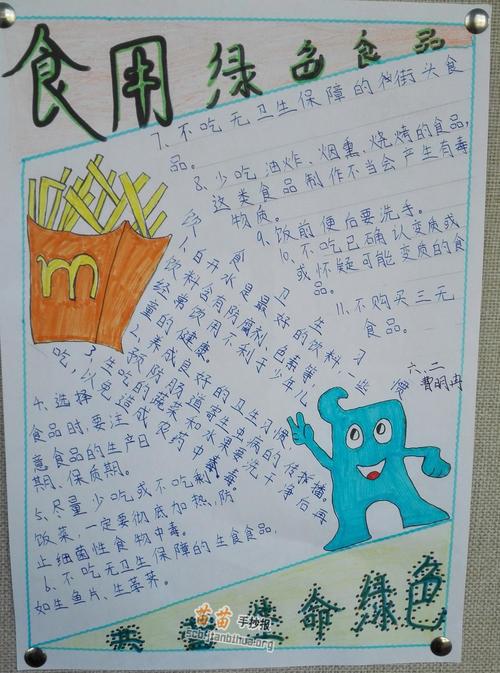 食用绿色食品
7、不吃无卫生保障的街头食
品。
8、少吃油炸、烟熏、烧烤的食品,
这类食品制作不当会产生有毒
物质。
9、饭前便后要洗手。
10、不吃已确认变质或
或怀疑可能变质的食
品。
11、不购买三无
食品。
六、二
饮食卫生习惯
1、白开水是最好的饮料,一些
饮料含有防腐剂、色素等
经常饮用不利于少年儿
童的健康
2、养成良好的卫生习惯
预防肠道寄生虫病的传播。
3、生吃的蔬菜和水果要洗干净后再
吃,以免造成农药中毒。
4、选择
食品时,要注
意食品的生产日
期、保质期。
5、尽量少吃或不吃剩
饭菜,一定要彻底加热,防
止细菌性食物中毒。
6、不吃无卫生保障的生食食品,
如生鱼片、生荸荠。
生命绿色
m
苗苗手抄报